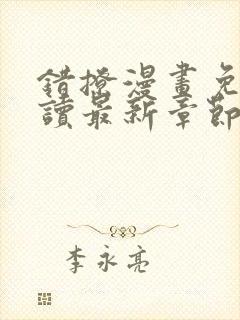 錯撩漫畫免
讀最新章節
李永亮